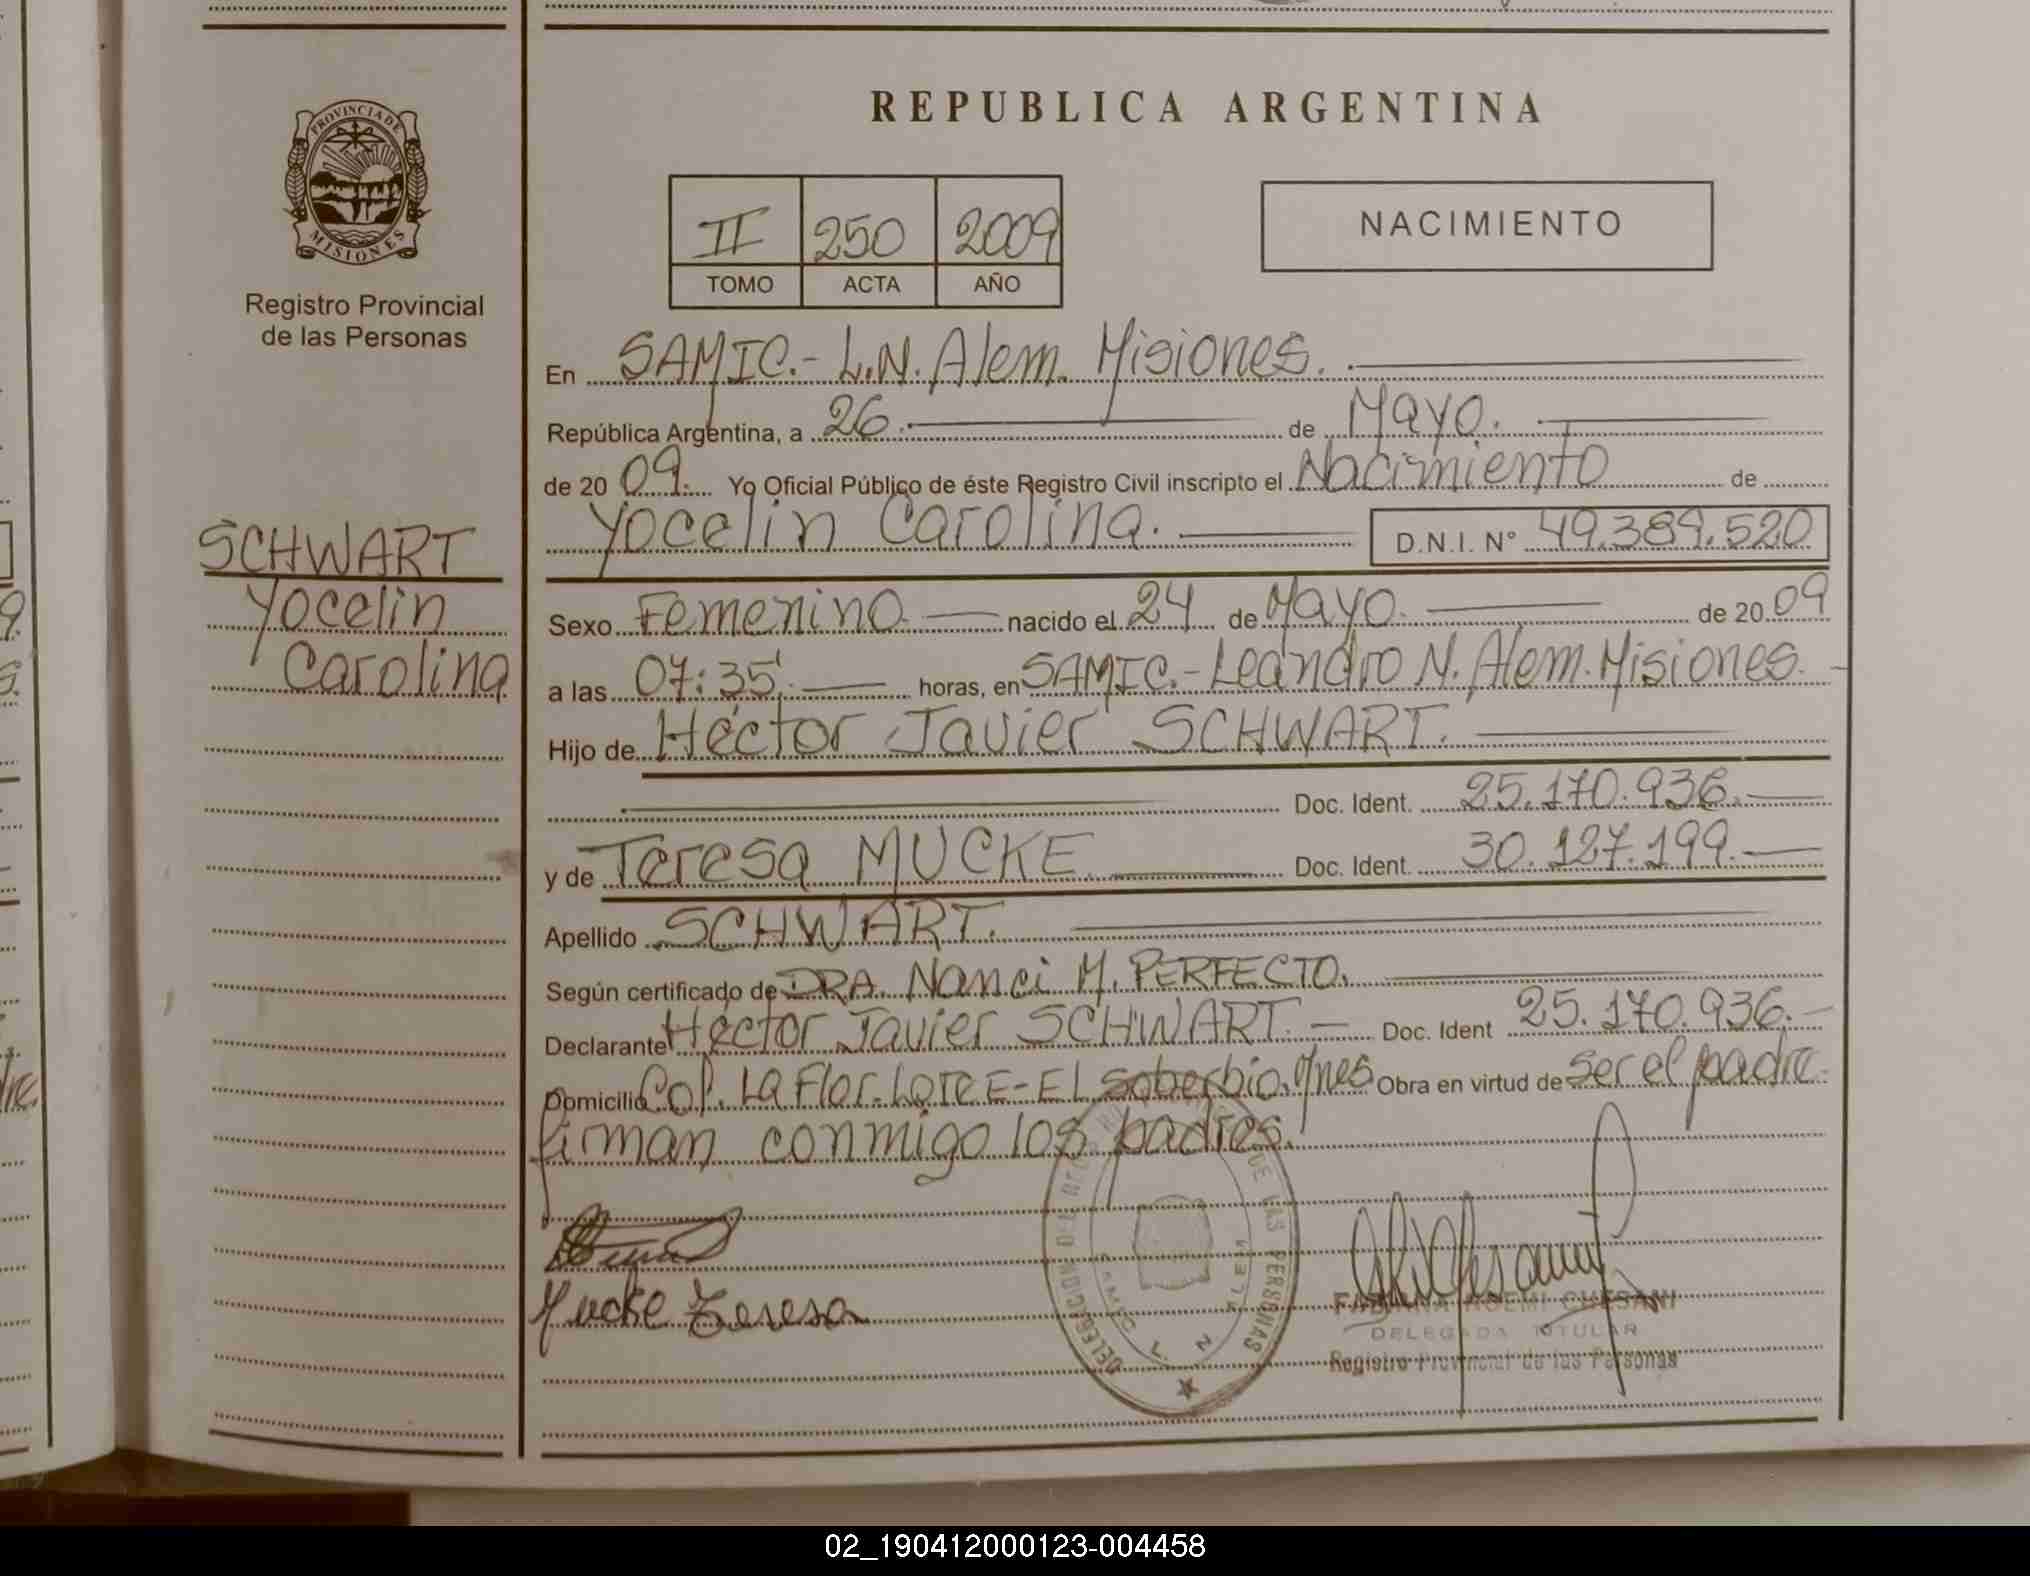 REPUBLICA ARGENTINA
PROVINCIA DE
MISIONES
Registro Provincial
de las Personas
II 250 2009
TOMO ACTA AÑO
NACIMIENTO
En SAMIC.- L.N. Alem. Misiones.
República Argentina, a 26. de Mayo.
de 20 09. Yo Oficial Público de éste Registro Civil inscripto el Nacimiento de
Yocelin Carolina. D.N.I. N° 49.389.520
SCHWART
Yocelin
Carolina
Sexo Femenino nacido el 24 de Mayo. de 20 09
a las 07:35. horas, en SAMIC.- Leandro N. Alem. Misiones.
Hijo de Héctor Javier SCHWART.
Doc. Ident. 25.170.936.
y de Teresa MUCKE Doc. Ident. 30.127.199.
Apellido SCHWART.
Según certificado de DRA. Nanci M. PERFECTO.
Declarante Héctor Javier SCHWART. Doc. Ident 25.170.936.
Domicilio Col. La Flor. Lote E- El Soberbio. Mnes Obra en virtud de ser el padre.
firman conmigo los padres.
Mucke Teresa
DELEGACION DEL REG DE LAS PERSONAS
SAMIC L. N. ALEM
FABIANA NOEMI CHESANI
DELEGADA TITULAR
Registro Provincial de las Personas
02_190412000123-004458